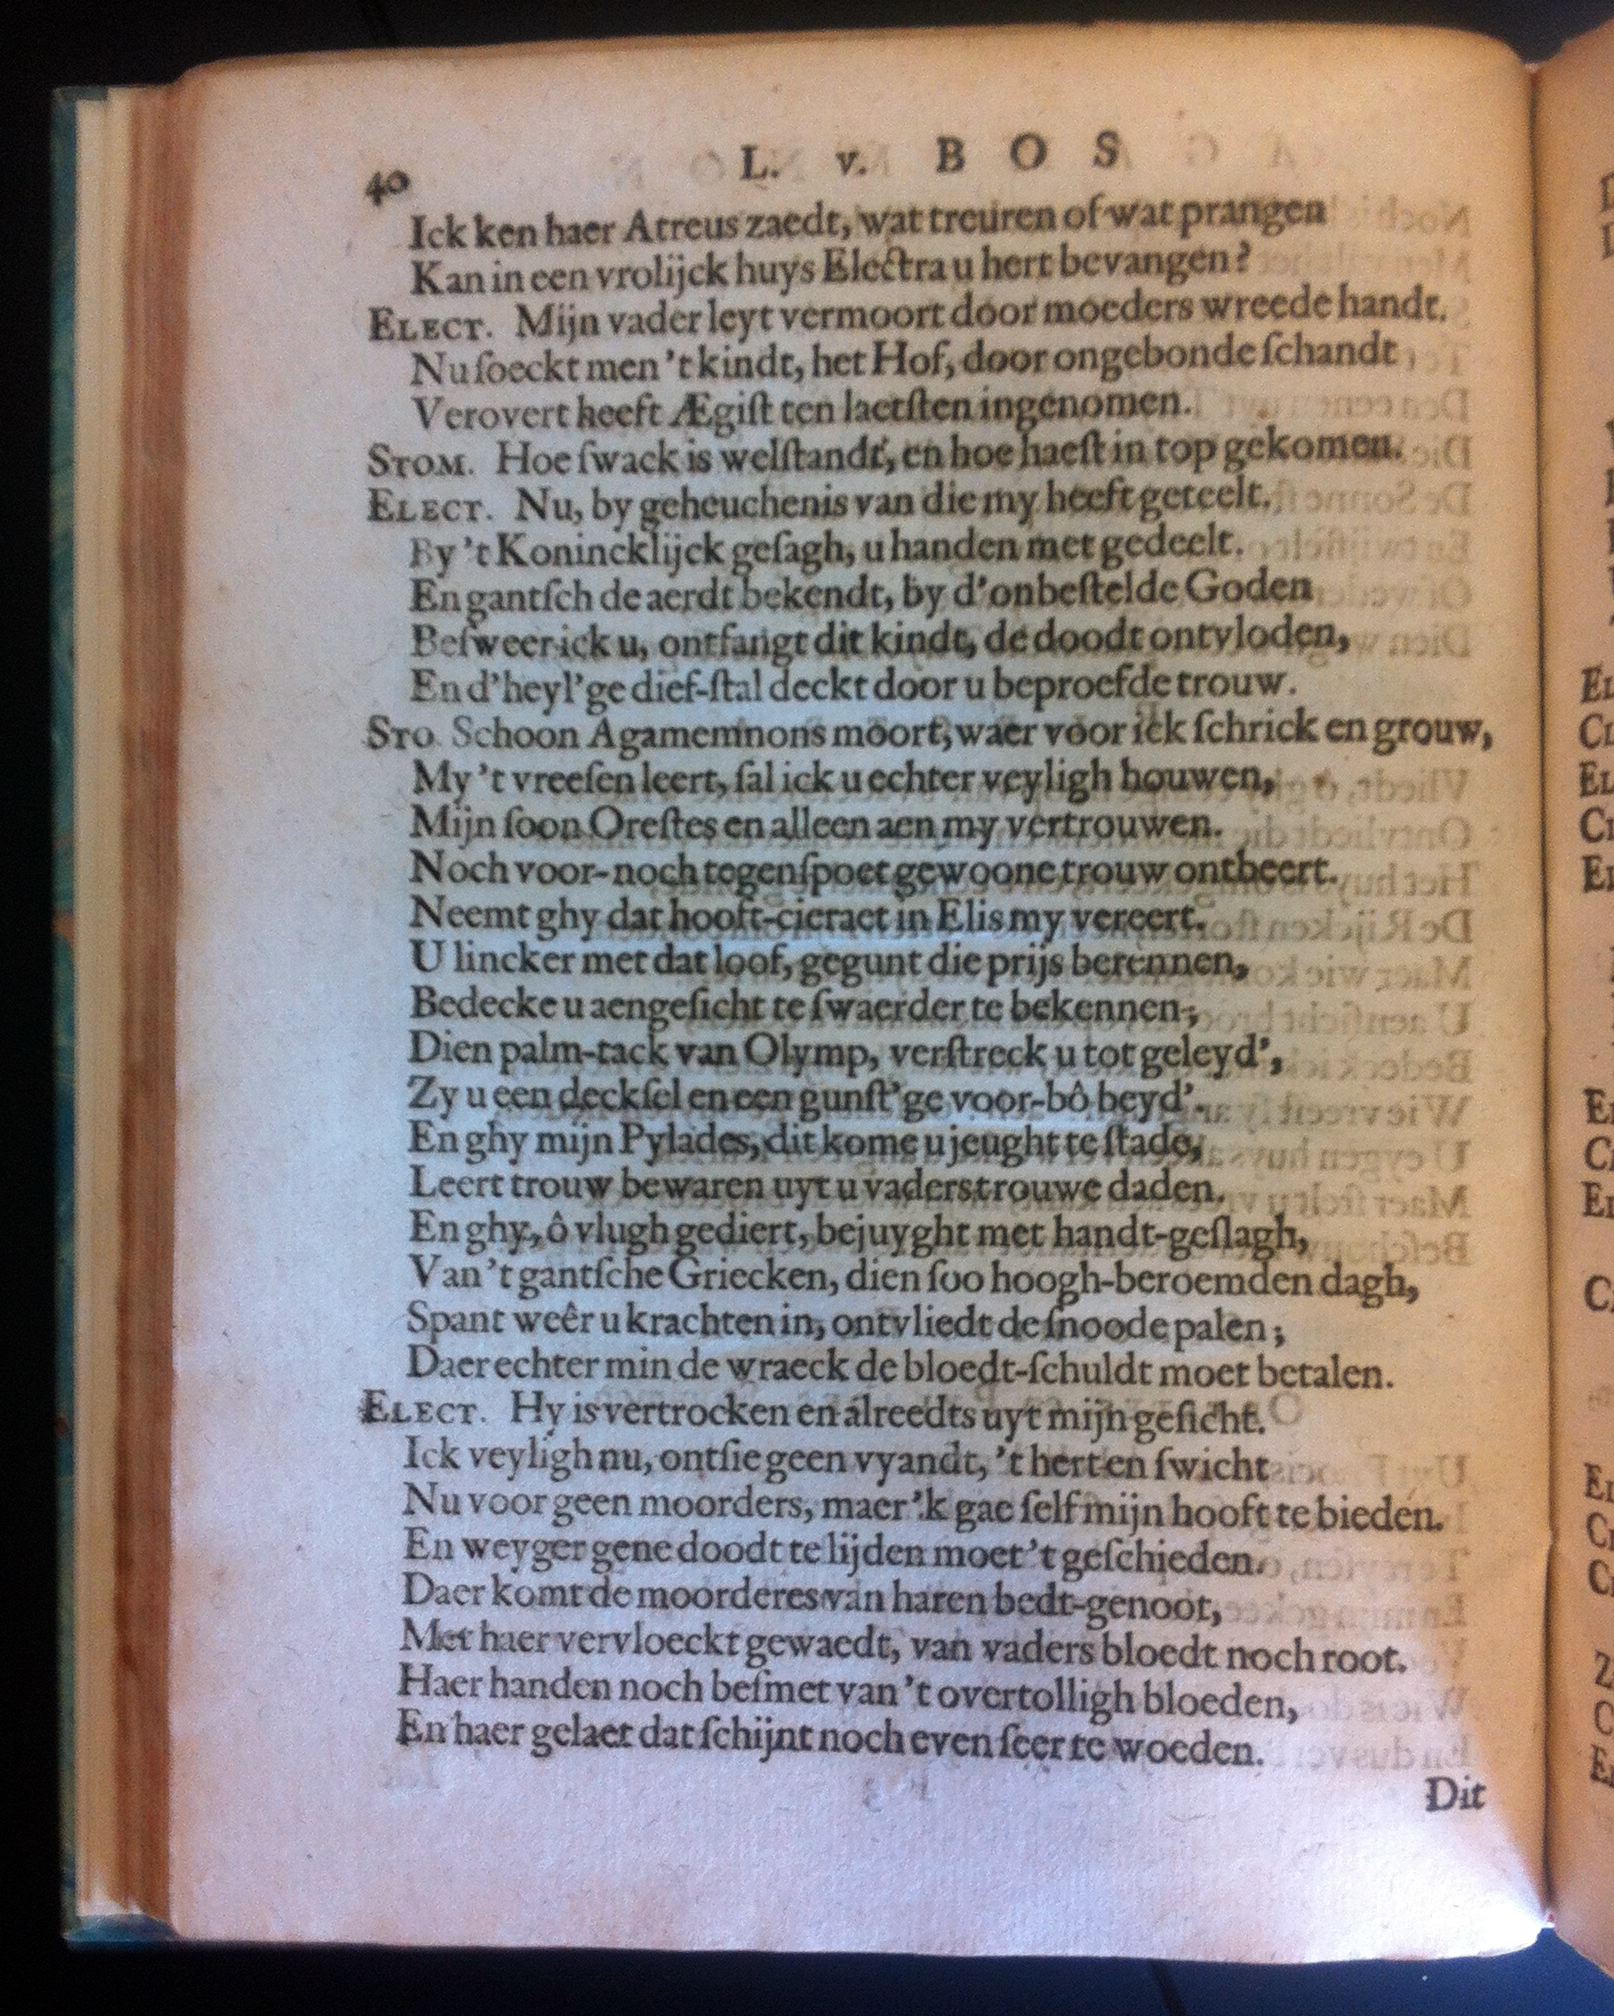 40 L. v. BOS
Ick ken haer Atreus zaedt, wat treuren of wat prangen
Kan in een vrolijck huys Electra u hert bevangen?
ELECT. Mijn vader leyt vermoort door moeders wreede handt.
Nu ſoeckt men 't kindt, het Hof, door ongebonde ſchandt,
Verovert heeft Ægiſt ten laetſten ingenomen.
STOM. Hoe ſwack is welſtandt, en hoe haeſt in top gekomen.
ELECT. Nu, by geheuchenis van die my heeft geteelt,
By 't Konincklijck geſagh, u handen met gedeelt.
En gantſch de aerdt bekendt, by d'onbeſtelde Goden
Beſweer ick u, ontfangt dit kindt, de doodt ontvloden,
En d'heyl'ge dief-ſtal deckt door u beproefde trouw.
STO. Schoon Agamemnons moort, waer voor ick ſchrick en grouw,
My 't vreeſen leert, ſal ick u echter veyligh houwen,
Mijn ſoon Oreſtes en alleen aen my vertrouwen.
Noch voor-noch tegenſpoet gewoone trouw ontbeert.
Neemt ghy dat hooft-cieraet in Elis my vereert.
U lincker met dat loof, gegunt die prijs berennen,
Bedecke u aengeſicht te ſwaerder te bekennen;
Dien palm-tack van Olymp, verſtreck u tot geleyd',
Zy u een deckſel en een gunſt'ge voor-bô beyd'.
En ghy mijn Pylades, dit kome u jeught te ſtade,
Leert trouw bewaren uyt u vaders trouwe daden.
En ghy, ô vlugh gediert, bejuyght met handt-geſlagh,
Van 't gantſche Griecken, dien ſoo hoogh-beroemden dagh,
Spant weêr u krachten in, ontvliedt de ſnoode palen;
Daer echter min de wraeck de bloedt-ſchuldt moet betalen.
ELECT. Hy is vertrocken en alreedts uyt mijn geſicht.
Ick veyligh nu, ontſie geen vyandt, 't hert en ſwicht
Nu voor geen moorders, maer 'k gae ſelf mijn hooft te bieden.
En weyger gene doodt te lijden moet 't geſchieden.
Daer komt de moorderes van haren bedt-genoot,
Met haer vervloeckt gewaedt, van vaders bloedt noch root.
Haer handen noch beſmet van 't overtolligh bloeden,
En haer gelaet dat ſchijnt noch even ſeer te woeden.
Dit